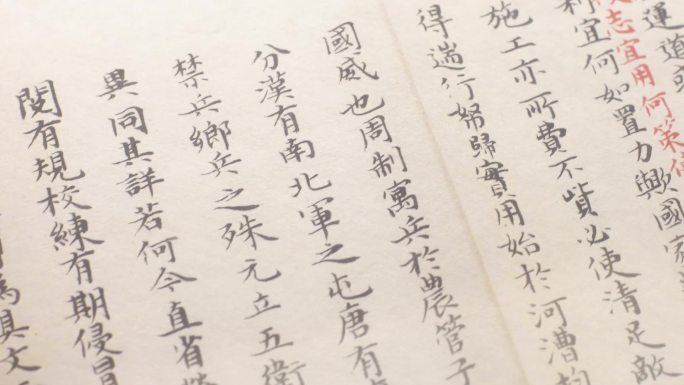 運道或
志宜用何策
利宜何如置力興國家
施工亦所費不貲必使清足敵
得遄行帑歸實用始於河漕
國威也周制寓兵於農管子
分漢有南北軍之屯唐有
禁兵鄉兵之殊元立五衛
異同其詳若何今直省
閱有規校練有期侵冒
為具文